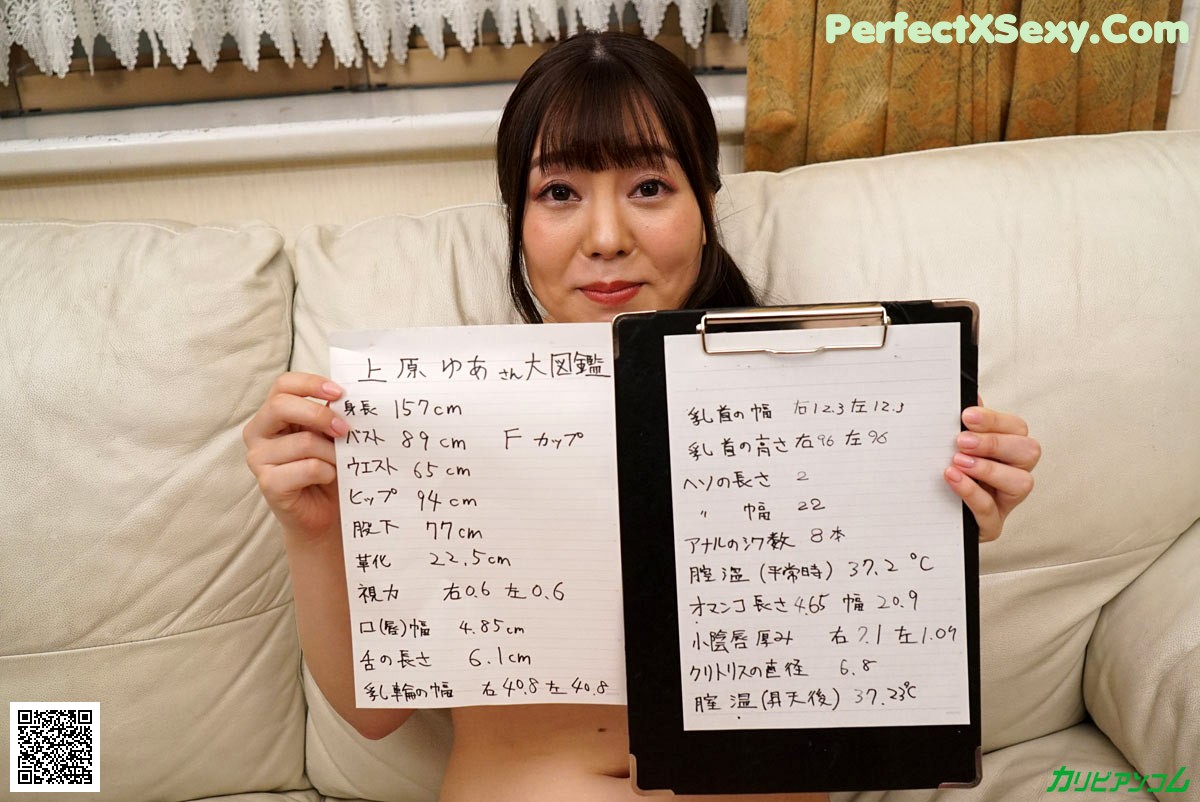 PerfectXSexy.Com
上原ゆあさん大図鑑
身長 157cm
バスト 89cm Fカップ
ウエスト 65cm
ヒップ 94cm
股下 77cm
革化 22.5cm
視力 右0.6 左0.6
口(唇)幅 4.85cm
舌の長さ 6.1cm
乳輪の幅 右40.8 左40.8
乳首の幅 右12.3 左12.3
乳首の高さ 右96 左96
ヘソの長さ 2
〃 幅 22
アナルのシワ数 8本
膣温(平常時) 37.2℃
オマンコ長さ4.65 幅 20.9
小陰唇厚み 右7.1 左1.09
クリトリスの直径 6.8
膣温(昇天後) 37.23℃
カリビアンコム